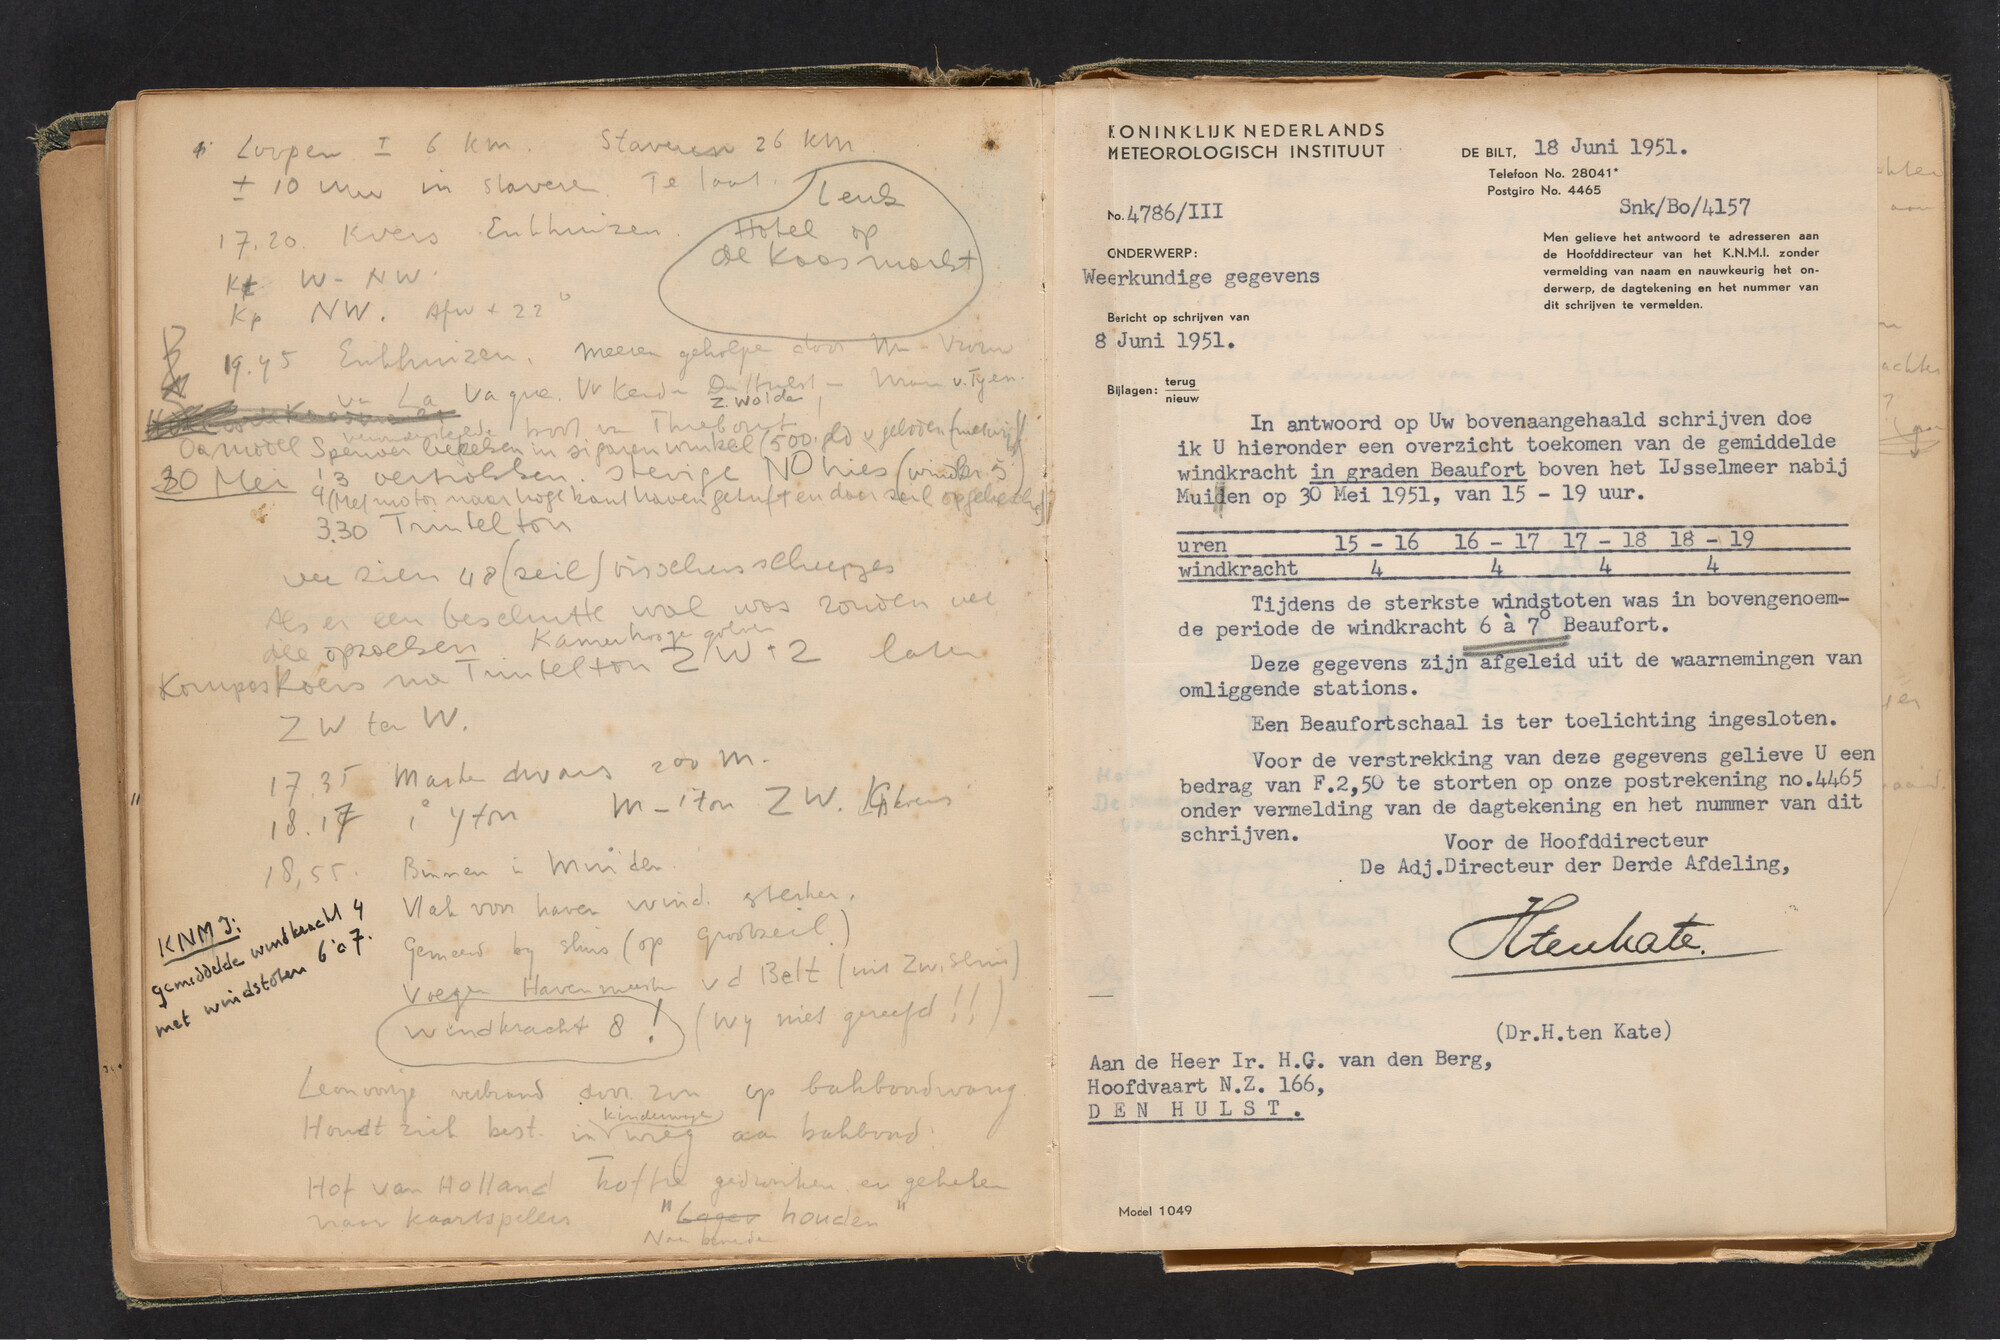 Loopen ± 6 km. Staveren 26 km
± 10 uur in Staveren. Te laat.
Leuk
Hotel op
de Kaasmarkt
17.20. Koers Enkhuizen.
W - NW.
Kp NW. Afw + 22°
19.45 Enkhuizen. meeren geholpen door
La Vague.
Z. Wolde
boot
30 Mei 13 vertrokken. stevige NO bries (windkr 5)
(Met motor naar hoge kant haven getuft en daar zeil opgehesen)
3.30 Trintel ton
we zien 48 (zeil) visschersscheepjes
Als er een beschutte wal was zouden we
die opzoeken Kamerhooge golven
Kompaskoers na Trintelton ZW + Z later
ZW ten W.
17.35 Marken dwars 200 m.
18.17 ton M - ton ZW. Kp koers
18,55. Binnen in Muiden
Vlak voor haven wind sterker.
Gemeerd by sluis (op Grootzeil)
Vroegen Havenmeester vd Belt (uit Zw.sluis)
windkracht 8! (Wy niet gereefd!!)
KNMI:
gemiddelde windkracht 4
met windstoten 6 à 7.
Leonoortje verbrand door zon op bakboordwang
Houdt zich best. in kinderwagen wieg aan bakboord.
Hof van Holland koffie gedronken en gekeken
naar kaartspelers "Lager houden"
Naar beneden
KONINKLIJK NEDERLANDS
METEOROLOGISCH INSTITUUT
DE BILT, 18 Juni 1951.
Telefoon No. 28041*
Postgiro No. 4465
No. 4786/III
Snk/Bo/4157
ONDERWERP:
Weerkundige gegevens
Men gelieve het antwoord te adresseren aan
de Hoofddirecteur van het K.N.M.I. zonder
vermelding van naam en nauwkeurig het on-
derwerp, de dagtekening en het nummer van
dit schrijven te vermelden.
Bericht op schrijven van
8 Juni 1951.
Bijlagen: terug
nieuw
In antwoord op Uw bovenaangehaald schrijven doe
ik U hieronder een overzicht toekomen van de gemiddelde
windkracht in graden Beaufort boven het IJsselmeer nabij
Muiden op 30 Mei 1951, van 15 - 19 uur.
uren 15 - 16 16 - 17 17 - 18 18 - 19
windkracht 4 4 4 4
Tijdens de sterkste windstoten was in bovengenoem-
de periode de windkracht 6 à 7° Beaufort.
Deze gegevens zijn afgeleid uit de waarnemingen van
omliggende stations.
Een Beaufortschaal is ter toelichting ingesloten.
Voor de verstrekking van deze gegevens gelieve U een
bedrag van F.2,50 te storten op onze postrekening no.4465
onder vermelding van de dagtekening en het nummer van dit
schrijven.
Voor de Hoofddirecteur
De Adj.Directeur der Derde Afdeling,
HtenKate.
(Dr.H.ten Kate)
Aan de Heer Ir. H.G. van den Berg,
Hoofdvaart N.Z. 166,
DEN HULST.
Model 1049